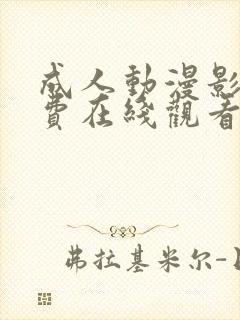 成人動漫影
費在綫觀看
弗拉基米尔-